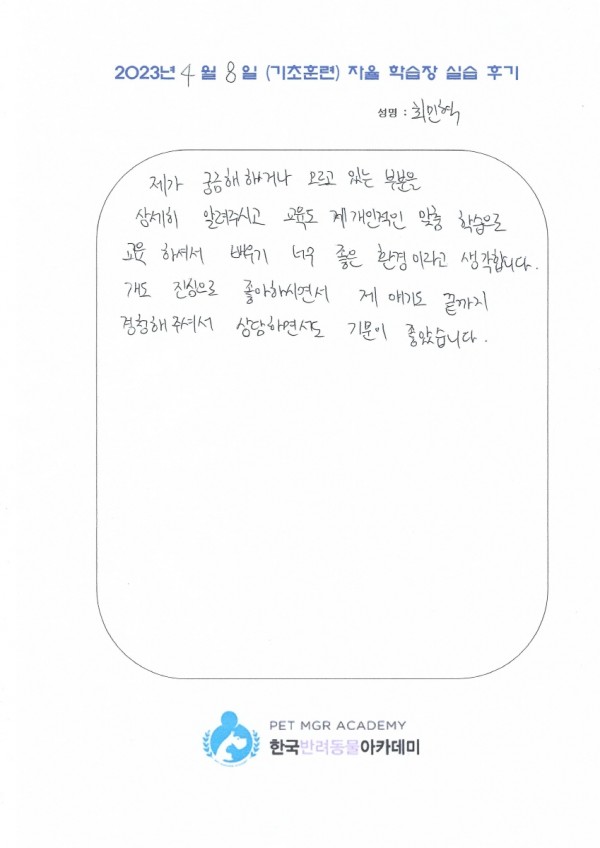 2023년 4월 8일 (기초훈련) 자율 학습장 실습 후기
성명 : 최민혁
제가 궁금해 해거나 모르고 있는 부분을
상세히 알려주시고 교육도 제 개인적인 맞춤 학습으로
교육 하셔서 배우기 너무 좋은 환경이라고 생각합니다.
개도 진심으로 좋아하시면서 제 얘기도 끝까지
경청해 주셔서 상담하면서도 기분이 좋았습니다.
PET MGR ACADEMY
한국반려동물아카데미